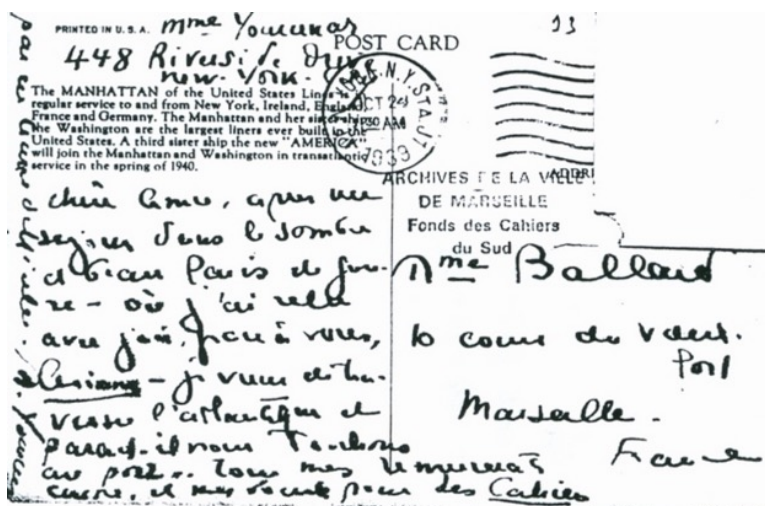 PRINTED IN U. S. A. Mme Yourcenar
448 Riverside Drive
New-York.
POST CARD
13
N.Y. STA. J
OCT 24
30 AM
1939
The MANHATTAN of the United States Lines is in
regular service to and from New York, Ireland, England,
France and Germany. The Manhattan and her sister ship
the Washington are the largest liners ever built in the
United States. A third sister ship the new "AMERICA"
will join the Manhattan and Washington in transatlantic
service in the spring of 1940.
ADDRE
ARCHIVES DE LA VILLE
DE MARSEILLE
Fonds des Cahiers
du Sud
chère Amie, après un
séjour dans le sombre
et beau Paris de guer-
re - où j'ai relu
avec joie, grâce à vous,
- je viens de tra-
verser l'atlantique et
paraît-il nous touchons
au port... Tous mes remerciements
encore, et mes vœux pour les Cahiers
par ces temps difficiles.
Mme Ballard
10 cours du Vieux.
Port
Marseille.
France